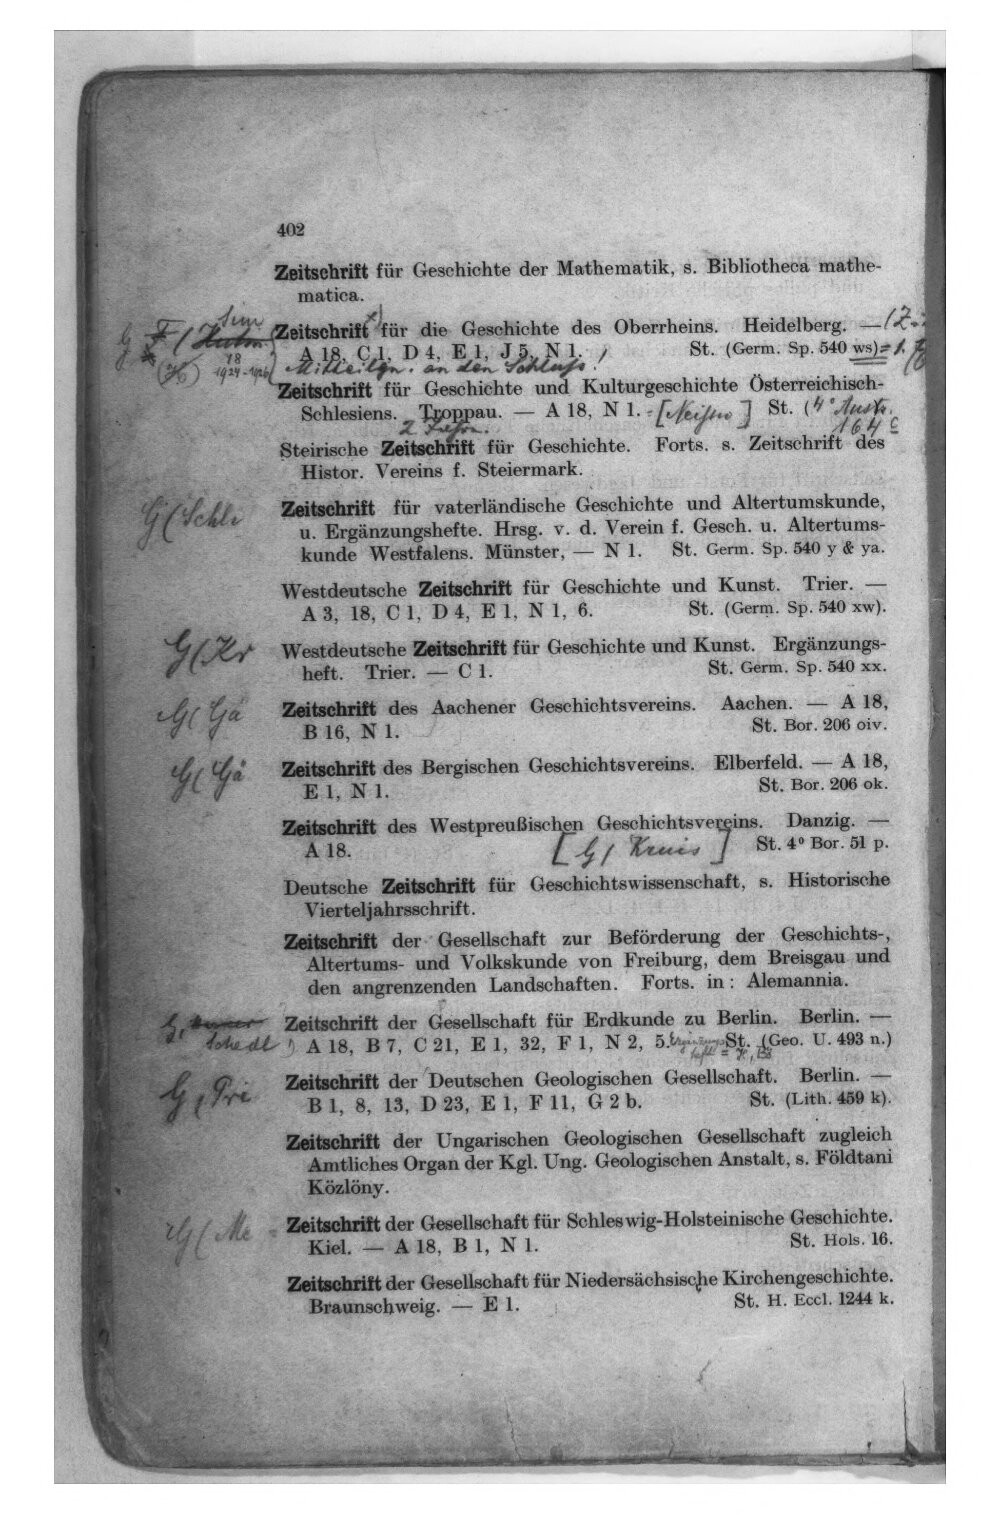 402
Zeitschrift für Geschichte der Mathematik, s. Bibliotheca mathe-
matica.
Zeitschrift für die Geschichte des Oberrheins. Heidelberg. —
A 18, C 1, D 4, E 1, J 5, N 1. St. (Germ. Sp. 540 ws)
18
1924-1926 Mitheilgn. an den Schluss.
Zeitschrift für Geschichte und Kulturgeschichte Österreichisch-
Schlesiens. Troppau. — A 18, N 1. St. (4° Austr.
164
Steirische Zeitschrift für Geschichte. Forts. s. Zeitschrift des
Histor. Vereins f. Steiermark.
G (Schl
Zeitschrift für vaterländische Geschichte und Altertumskunde,
u. Ergänzungshefte. Hrsg. v. d. Verein f. Gesch. u. Altertums-
kunde Westfalens. Münster, — N 1. St. Germ. Sp. 540 y & ya.
Westdeutsche Zeitschrift für Geschichte und Kunst. Trier. —
A 3, 18, C 1, D 4, E 1, N 1, 6. St. (Germ. Sp. 540 xw).
G (Kr
Westdeutsche Zeitschrift für Geschichte und Kunst. Ergänzungs-
heft. Trier. — C 1. St. Germ. Sp. 540 xx.
G (Gä
Zeitschrift des Aachener Geschichtsvereins. Aachen. — A 18,
B 16, N 1. St. Bor. 206 oiv.
G (Gä
Zeitschrift des Bergischen Geschichtsvereins. Elberfeld. — A 18,
E 1, N 1. St. Bor. 206 ok.
Zeitschrift des Westpreußischen Geschichtsvereins. Danzig. —
A 18. [G/ ] St. 4° Bor. 51 p.
Deutsche Zeitschrift für Geschichtswissenschaft, s. Historische
Vierteljahrsschrift.
Zeitschrift der Gesellschaft zur Beförderung der Geschichts-,
Altertums- und Volkskunde von Freiburg, dem Breisgau und
den angrenzenden Landschaften. Forts. in: Alemannia.
G, Schedl
Zeitschrift der Gesellschaft für Erdkunde zu Berlin. Berlin. —
A 18, B 7, C 21, E 1, 32, F 1, N 2, 5. St. (Geo. U. 493 n.)
G, Pri
Zeitschrift der Deutschen Geologischen Gesellschaft. Berlin. —
B 1, 8, 13, D 23, E 1, F 11, G 2 b. St. (Lith. 459 k).
Zeitschrift der Ungarischen Geologischen Gesellschaft zugleich
Amtliches Organ der Kgl. Ung. Geologischen Anstalt, s. Földtani
Közlöny.
G (Me
Zeitschrift der Gesellschaft für Schleswig-Holsteinische Geschichte.
Kiel. — A 18, B 1, N 1. St. Hols. 16.
Zeitschrift der Gesellschaft für Niedersächsische Kirchengeschichte.
Braunschweig. — E 1. St. H. Eccl. 1244 k.